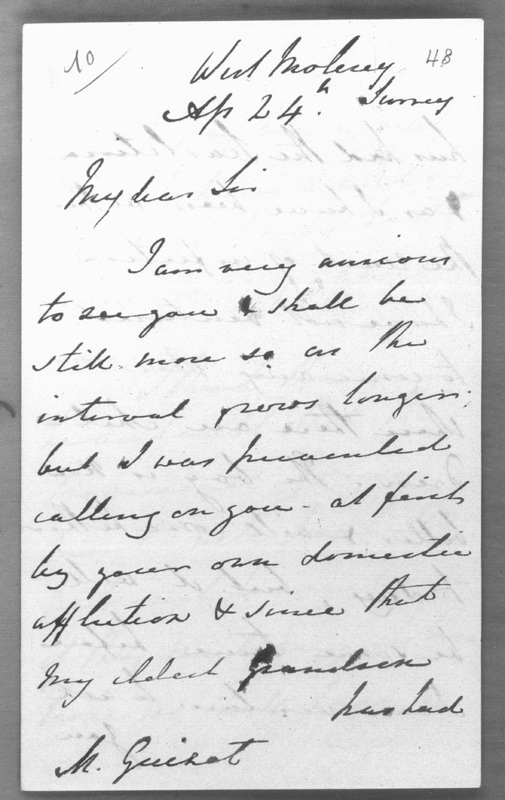 10/ 48
West Molesey
Ap 24th. Surrey
My dear Sir
I am very anxious
to see you & shall be
still more so as the
interval grows longer;
but I was prevented
calling on you - at first
by your own domestic
affliction & since that
my eldest grandson
has had
M. Guizot